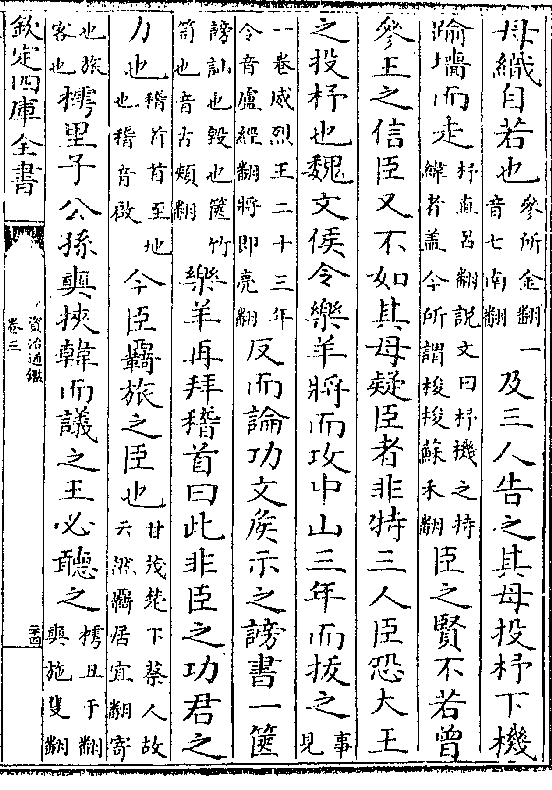 母織自若也參所金翻一音七南翻及三人告之其母投杼下機
踰墻而走杼直呂翻說文曰杼機之持緯者蓋今所謂梭梭蘇禾翻臣之賢不若曾
參王之信臣又不如其母疑臣者非特三人臣恐大王
之投杼也魏文侯令樂羊將而攻中山三年而拔之事見
一卷威烈王二十三年令音盧經翻將即亮翻反而論功文侯示之謗書一篋
謗訕也毀也篋竹笥也音古頰翻樂羊再拜稽首曰此非臣之功君之
力也稽首首至地也稽音啟今臣羈旅之臣也甘茂楚下蔡人故云然羈居宜翻寄
也旅客也樗里子公孫奭挾韓而議之王必聽之樗丑于翻奭施隻翻
欽定四庫全書
資治通鑑
卷三